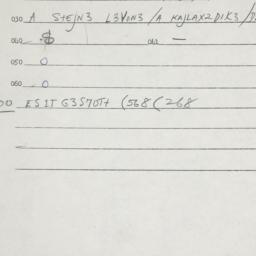 030 A STEJN3 L3VON3 /A KAJLAX2DIK3 /D
040 $ 041 —
050 0
060 0
00 ESIT G3S70T+ (568 (268